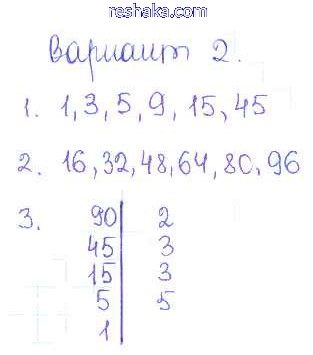 reshaka.com
Вариант 2.
1. 1, 3, 5, 9, 15, 45
2. 16, 32, 48, 64, 80, 96
3. 90 | 2
45 | 3
15 | 3
5 | 5
1 |